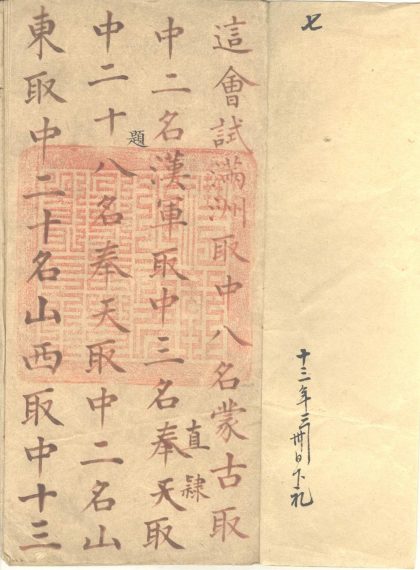 七
十三年三卅日下礼
這會試滿洲取中八名蒙古取
直隸
中二名漢軍取中三名奉天取
題
中二十八名奉天取中二名山
東取中二十名山西取中十三